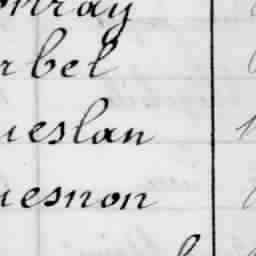 onray
rbel
ueslan
uesnon